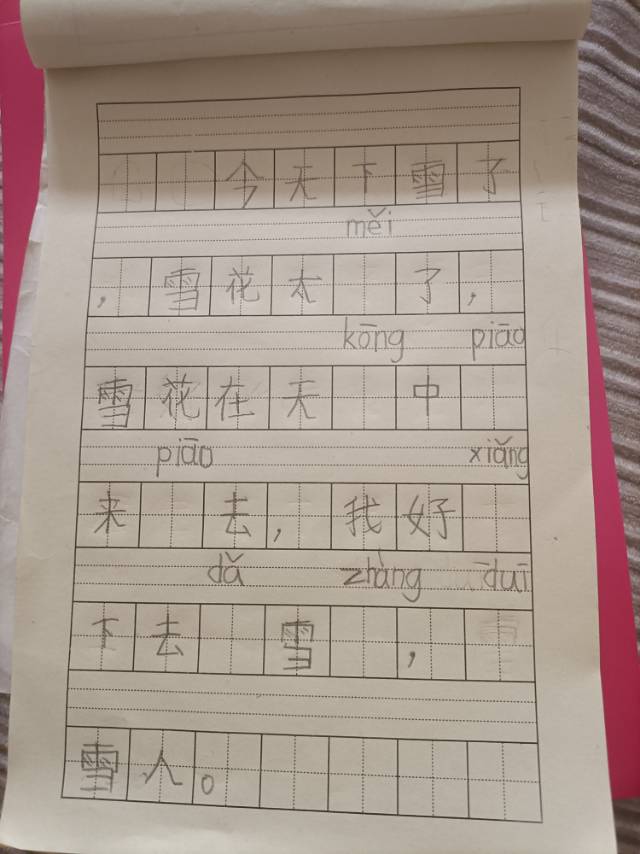 今天下雪了
měi
，雪花太 了，
kōng piāo
雪花在天 中
piāo xiǎng
来 去，我好
dǎ zhàng duī
下去 雪 ，
雪人。